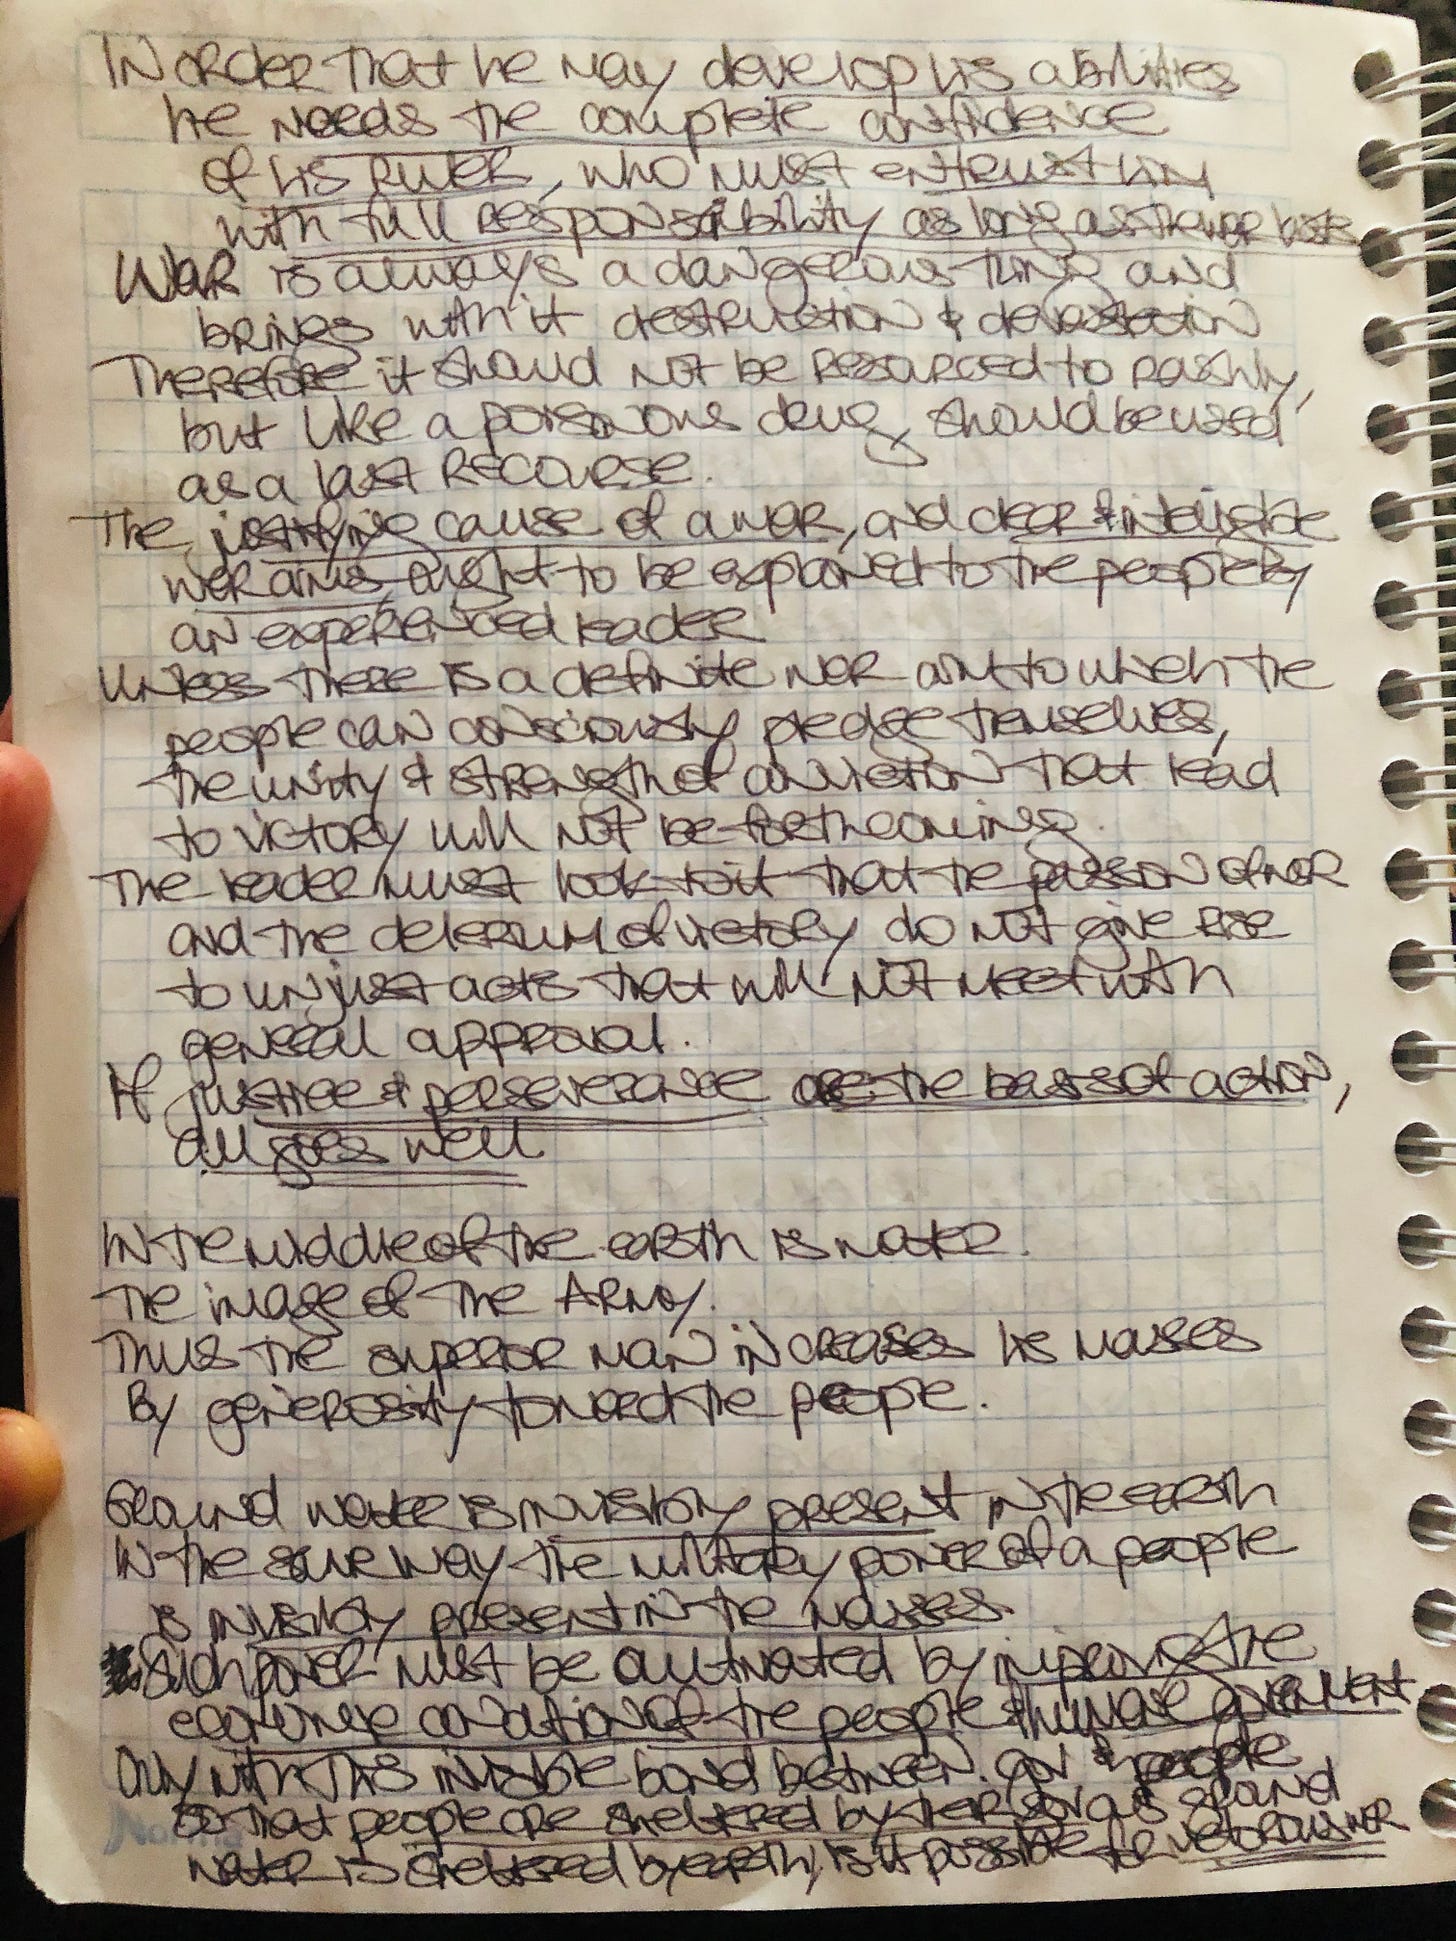 In order that he may develop his abilities
he needs the complete confidence
of his ruler, who must entrust him
with full responsibility as long as the war lasts
War is always a dangerous thing and
brings with it destruction & devastation
Therefore it should not be resorced to rashly,
but like a poisonous drug, should be used
as a last recourse.
The justifying cause of a war, and clear & intelligible
war aims, ought to be explained to the people by
an experienced leader
Unless there is a definite war aim to which the
people can consciously pledge themselves,
the unity & strength of conviction that lead
to victory will not be forthcoming.
The leader must look to it that the passion of war
and the delerium of victory do not give rise
to unjust acts that will not meet with
general approval.
If justice & perseverance are the basis of action,
all goes well
In the middle of the earth is water.
The image of the Army.
Thus the superior man increases his masses
By generosity toward the people.
Ground water is invisibly present in the earth
In the same way the military power of a people
is invisibly present in the masses.
Such power must be cultivated by improving the
economic condition of the people & humane government
Only with this invisible bond between gov & people
So that people are sheltered by their gov as ground
water is sheltered by earth, is it possible for victorious war
Norma